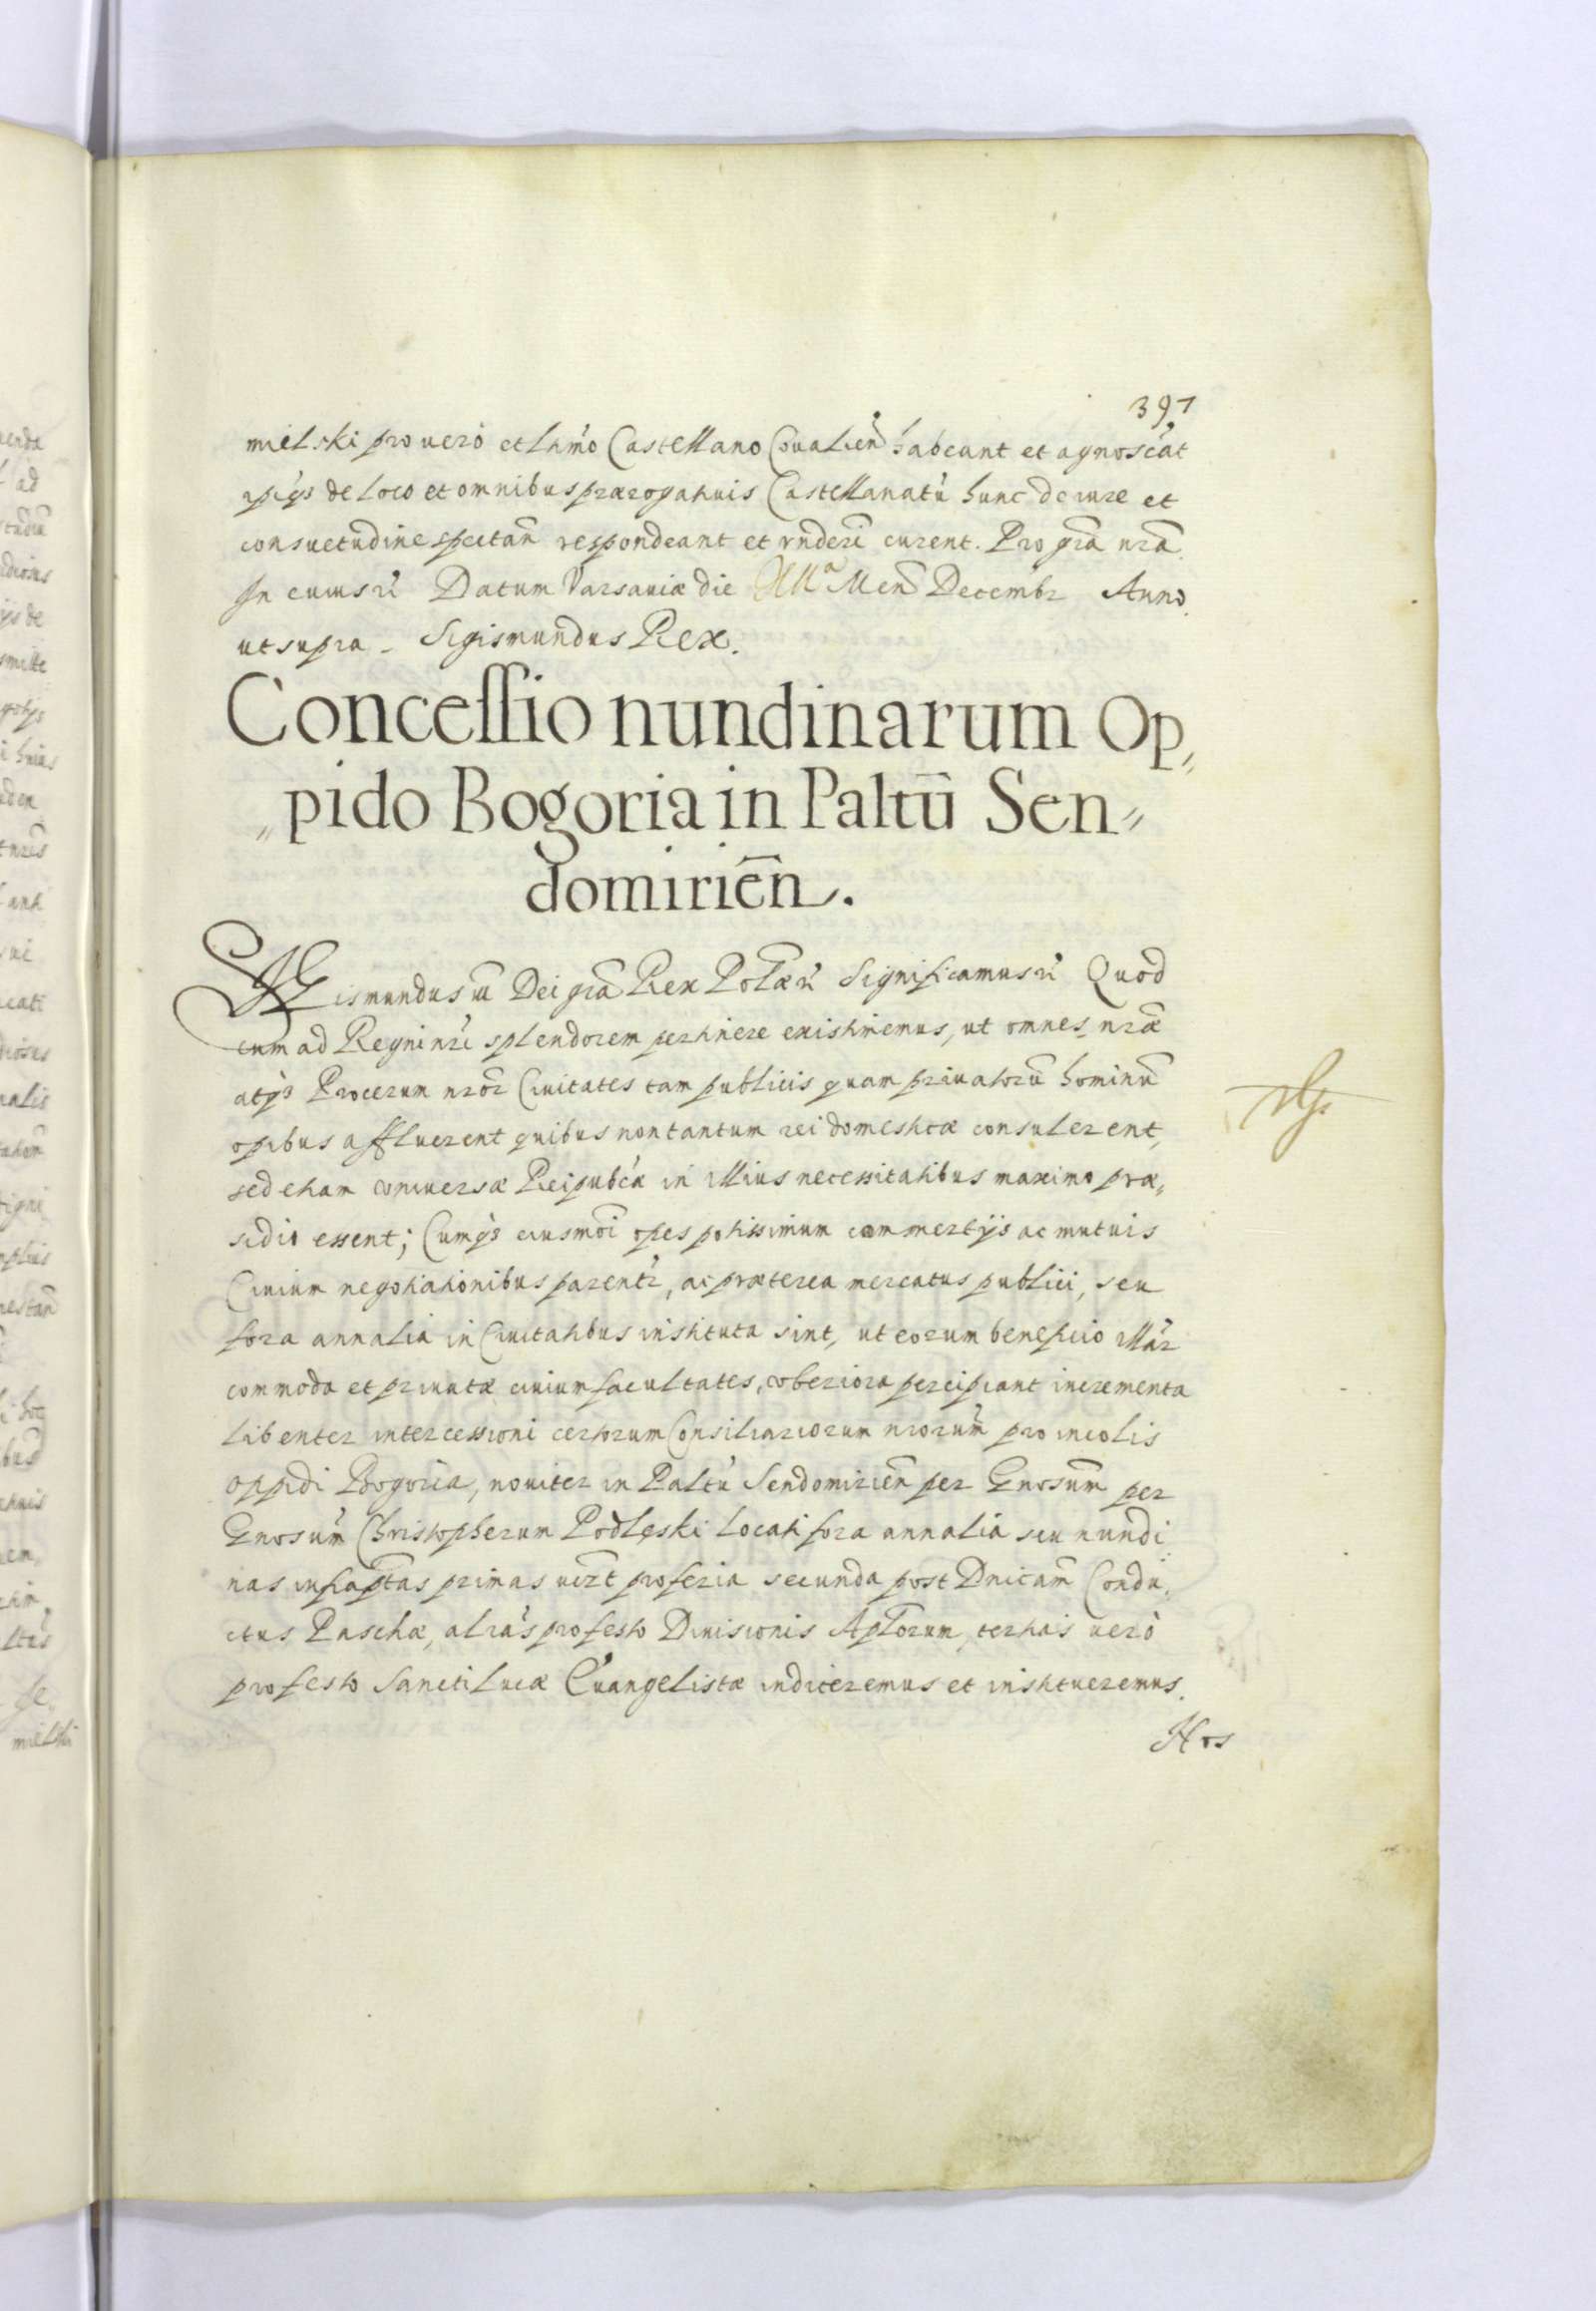 397
mielski pro uero et lrimo Castellano Coualien̄ habeant et agnoscāt
ipiq3 de loco et omnibus prærogatiuis Castellanatū hunc de iure et
consuetudine spectan̄ respondeant et rn̄deri curent. Pro grā nrā.
In cuius rī Datum Varsauiæ die Men̄ Decembr Anno
ut supra – Sigismundus Rex.
Concessio nundinarum Op„
„pido Bogoria in Paltū Sen„
domirien̄.
SIGismundus III Dei grā Rex Polæ rī Significamus rī Quod
cum ad Regni nrī splendorem pertinere existimemus, ut omnes nræ
atq3 Procerum nror̄ Ciuitates tam publicis quam priuatorū hominū
opibus affluerent quibus non tantum rei domesticæ consulerent,
sed etiam vniuersæ Reipubcæ in illius necessitatibus maximo præ„
sidio essent; Cumq3 eiusmōi opes potissimum commertijs ac mutuis
Ciuium negotiationibus parentr̄, ac præterea mercatus publici, seu
fora annalia in Ciuitatibus instituta sint, ut eorum beneficio illār
commoda et priuatæ ciuium facultates, vberiora percipiant incrementa
libenter intercessioni certorum Consiliariorum nrorum̄ pro incolis
oppidi Bogoria, nouiter in Paltū Sendomirien̄ per Gnosum̄ per
Gnosum̄ Christopherum Podleski locati fora annalia seu nundi
nas infraptas primas uirt̄ pro feria secunda post Dnicam̄ Condu„
ctus Paschæ, aliās pro festo Diuisionis Aplōrum, tertias uerò
pro festo Sancti Lucæ Euangelistæ indiceremus et institueremus.
Hos